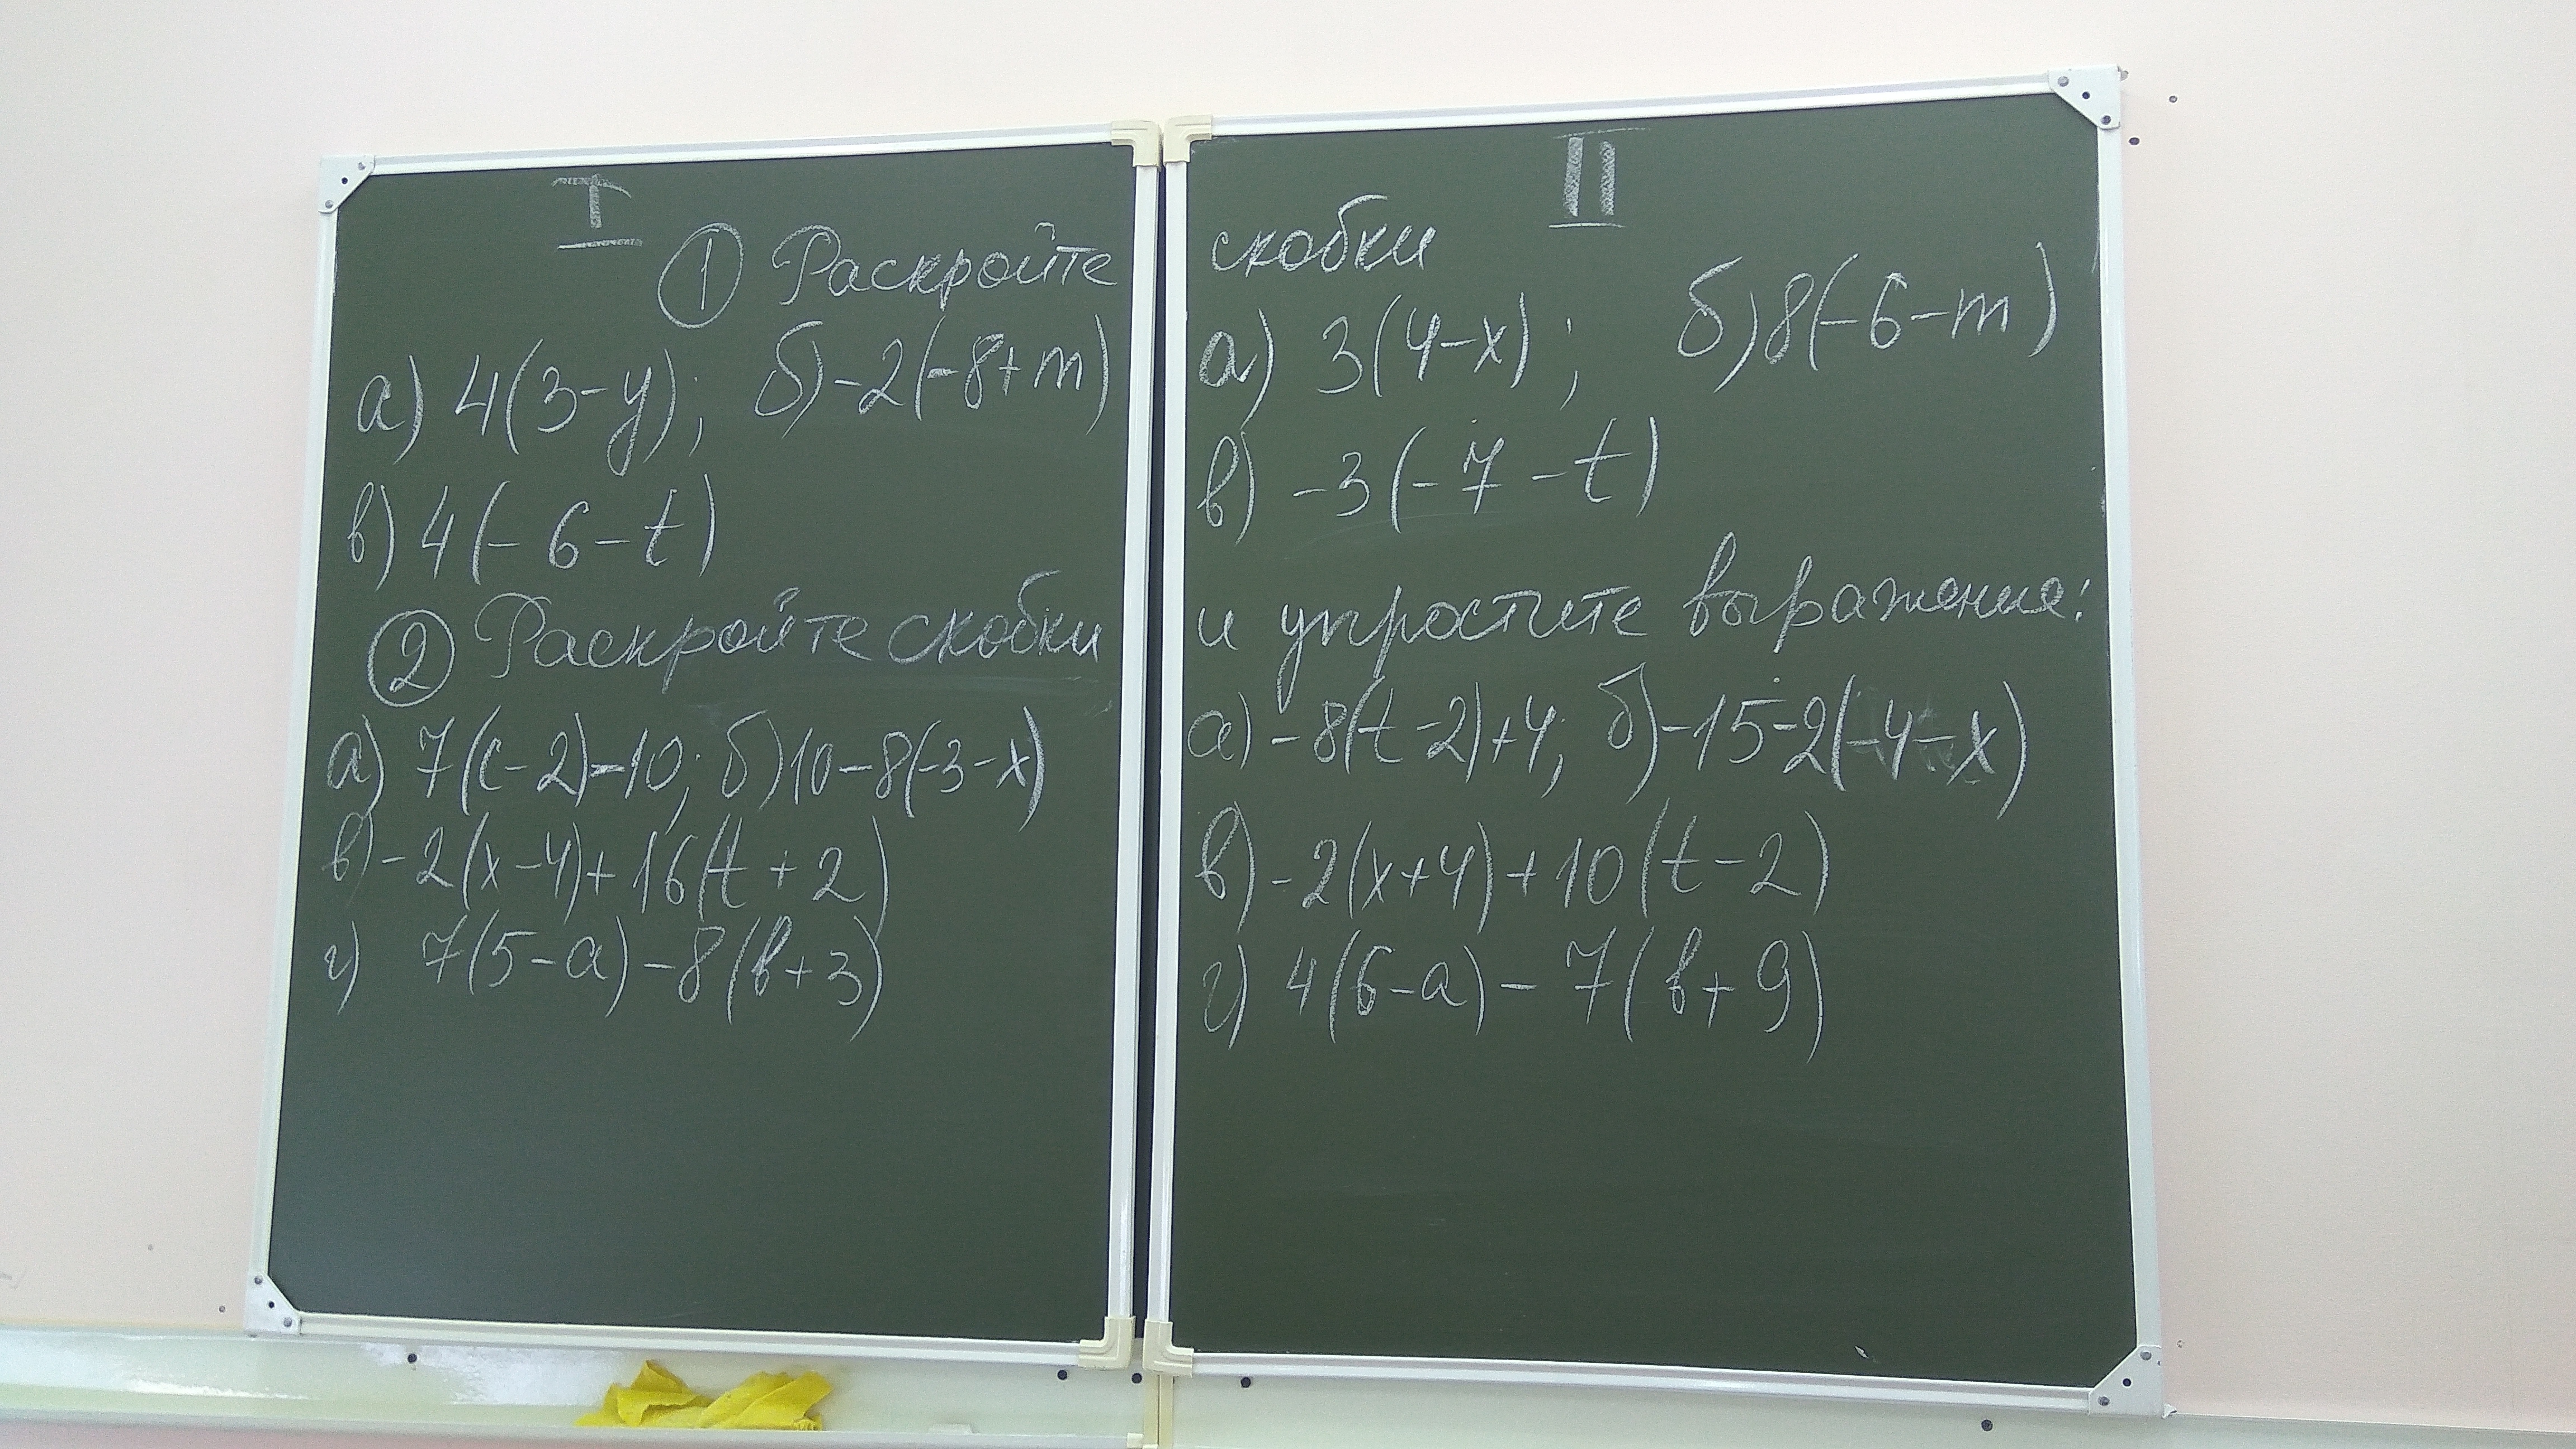 I
① Раскройте
а) 4(3-y); б) -2(-8+m)
в) 4(-6-t)
② Раскройте скобки
а) 7(c-2)-10; б) 10-8(-3-x)
в) -2(x-4)+16(t+2)
г) 7(5-a)-8(b+3)
II
скобки
а) 3(4-x); б) 8(-6-m)
в) -3(-7-t)
и упростите выражение:
а) -8(t-2)+4; б) -15-2(-4-x)
в) -2(x+4)+10(t-2)
г) 4(6-a)-7(b+9)